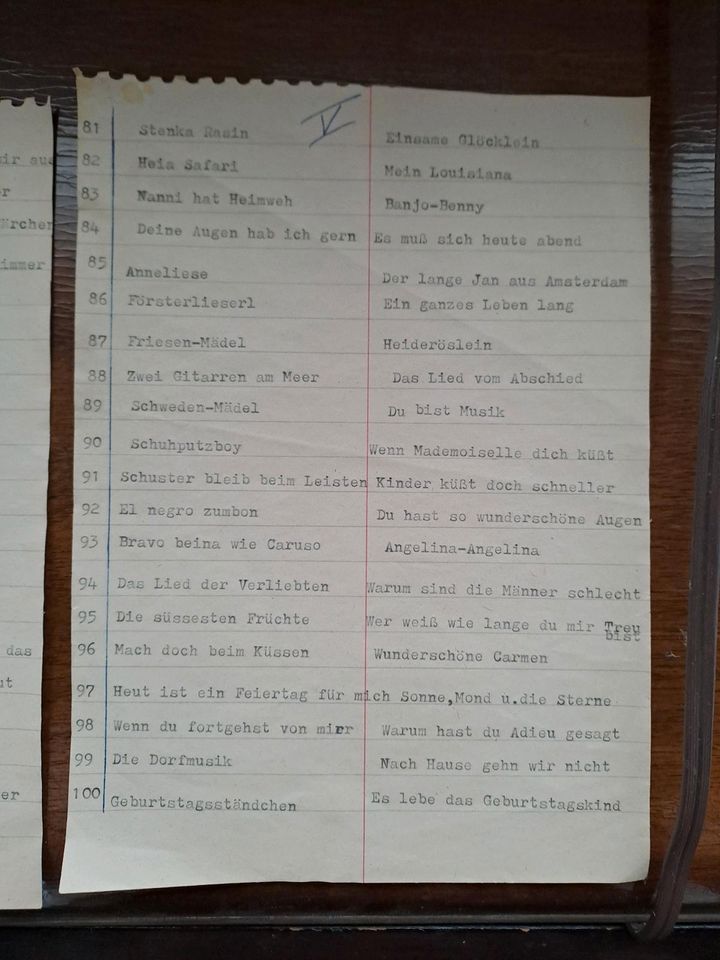 ir aus
r
ärchen
immer
das
ut
er
V
81 Stenka Rasin Einsame Glöcklein
82 Heia Safari Mein Louisiana
83 Nanni hat Heimweh Banjo-Benny
84 Deine Augen hab ich gern Es muß sich heute abend
85 Anneliese Der lange Jan aus Amsterdam
86 Försterlieserl Ein ganzes Leben lang
87 Friesen-Mädel Heideröslein
88 Zwei Gitarren am Meer Das Lied vom Abschied
89 Schweden-Mädel Du bist Musik
90 Schuhputzboy Wenn Mademoiselle dich küßt
91 Schuster bleib beim Leisten Kinder küßt doch schneller
92 El negro zumbon Du hast so wunderschöne Augen
93 Bravo beina wie Caruso Angelina-Angelina
94 Das Lied der Verliebten Warum sind die Männer schlecht
95 Die süssesten Früchte Wer weiß wie lange du mir Treu
bist
96 Mach doch beim Küssen Wunderschöne Carmen
97 Heut ist ein Feiertag für mich Sonne,Mond u.die Sterne
98 Wenn du fortgehst von mirr Warum hast du Adieu gesagt
99 Die Dorfmusik Nach Hause gehn wir nicht
100 Geburtstagsständchen Es lebe das Geburtstagskind